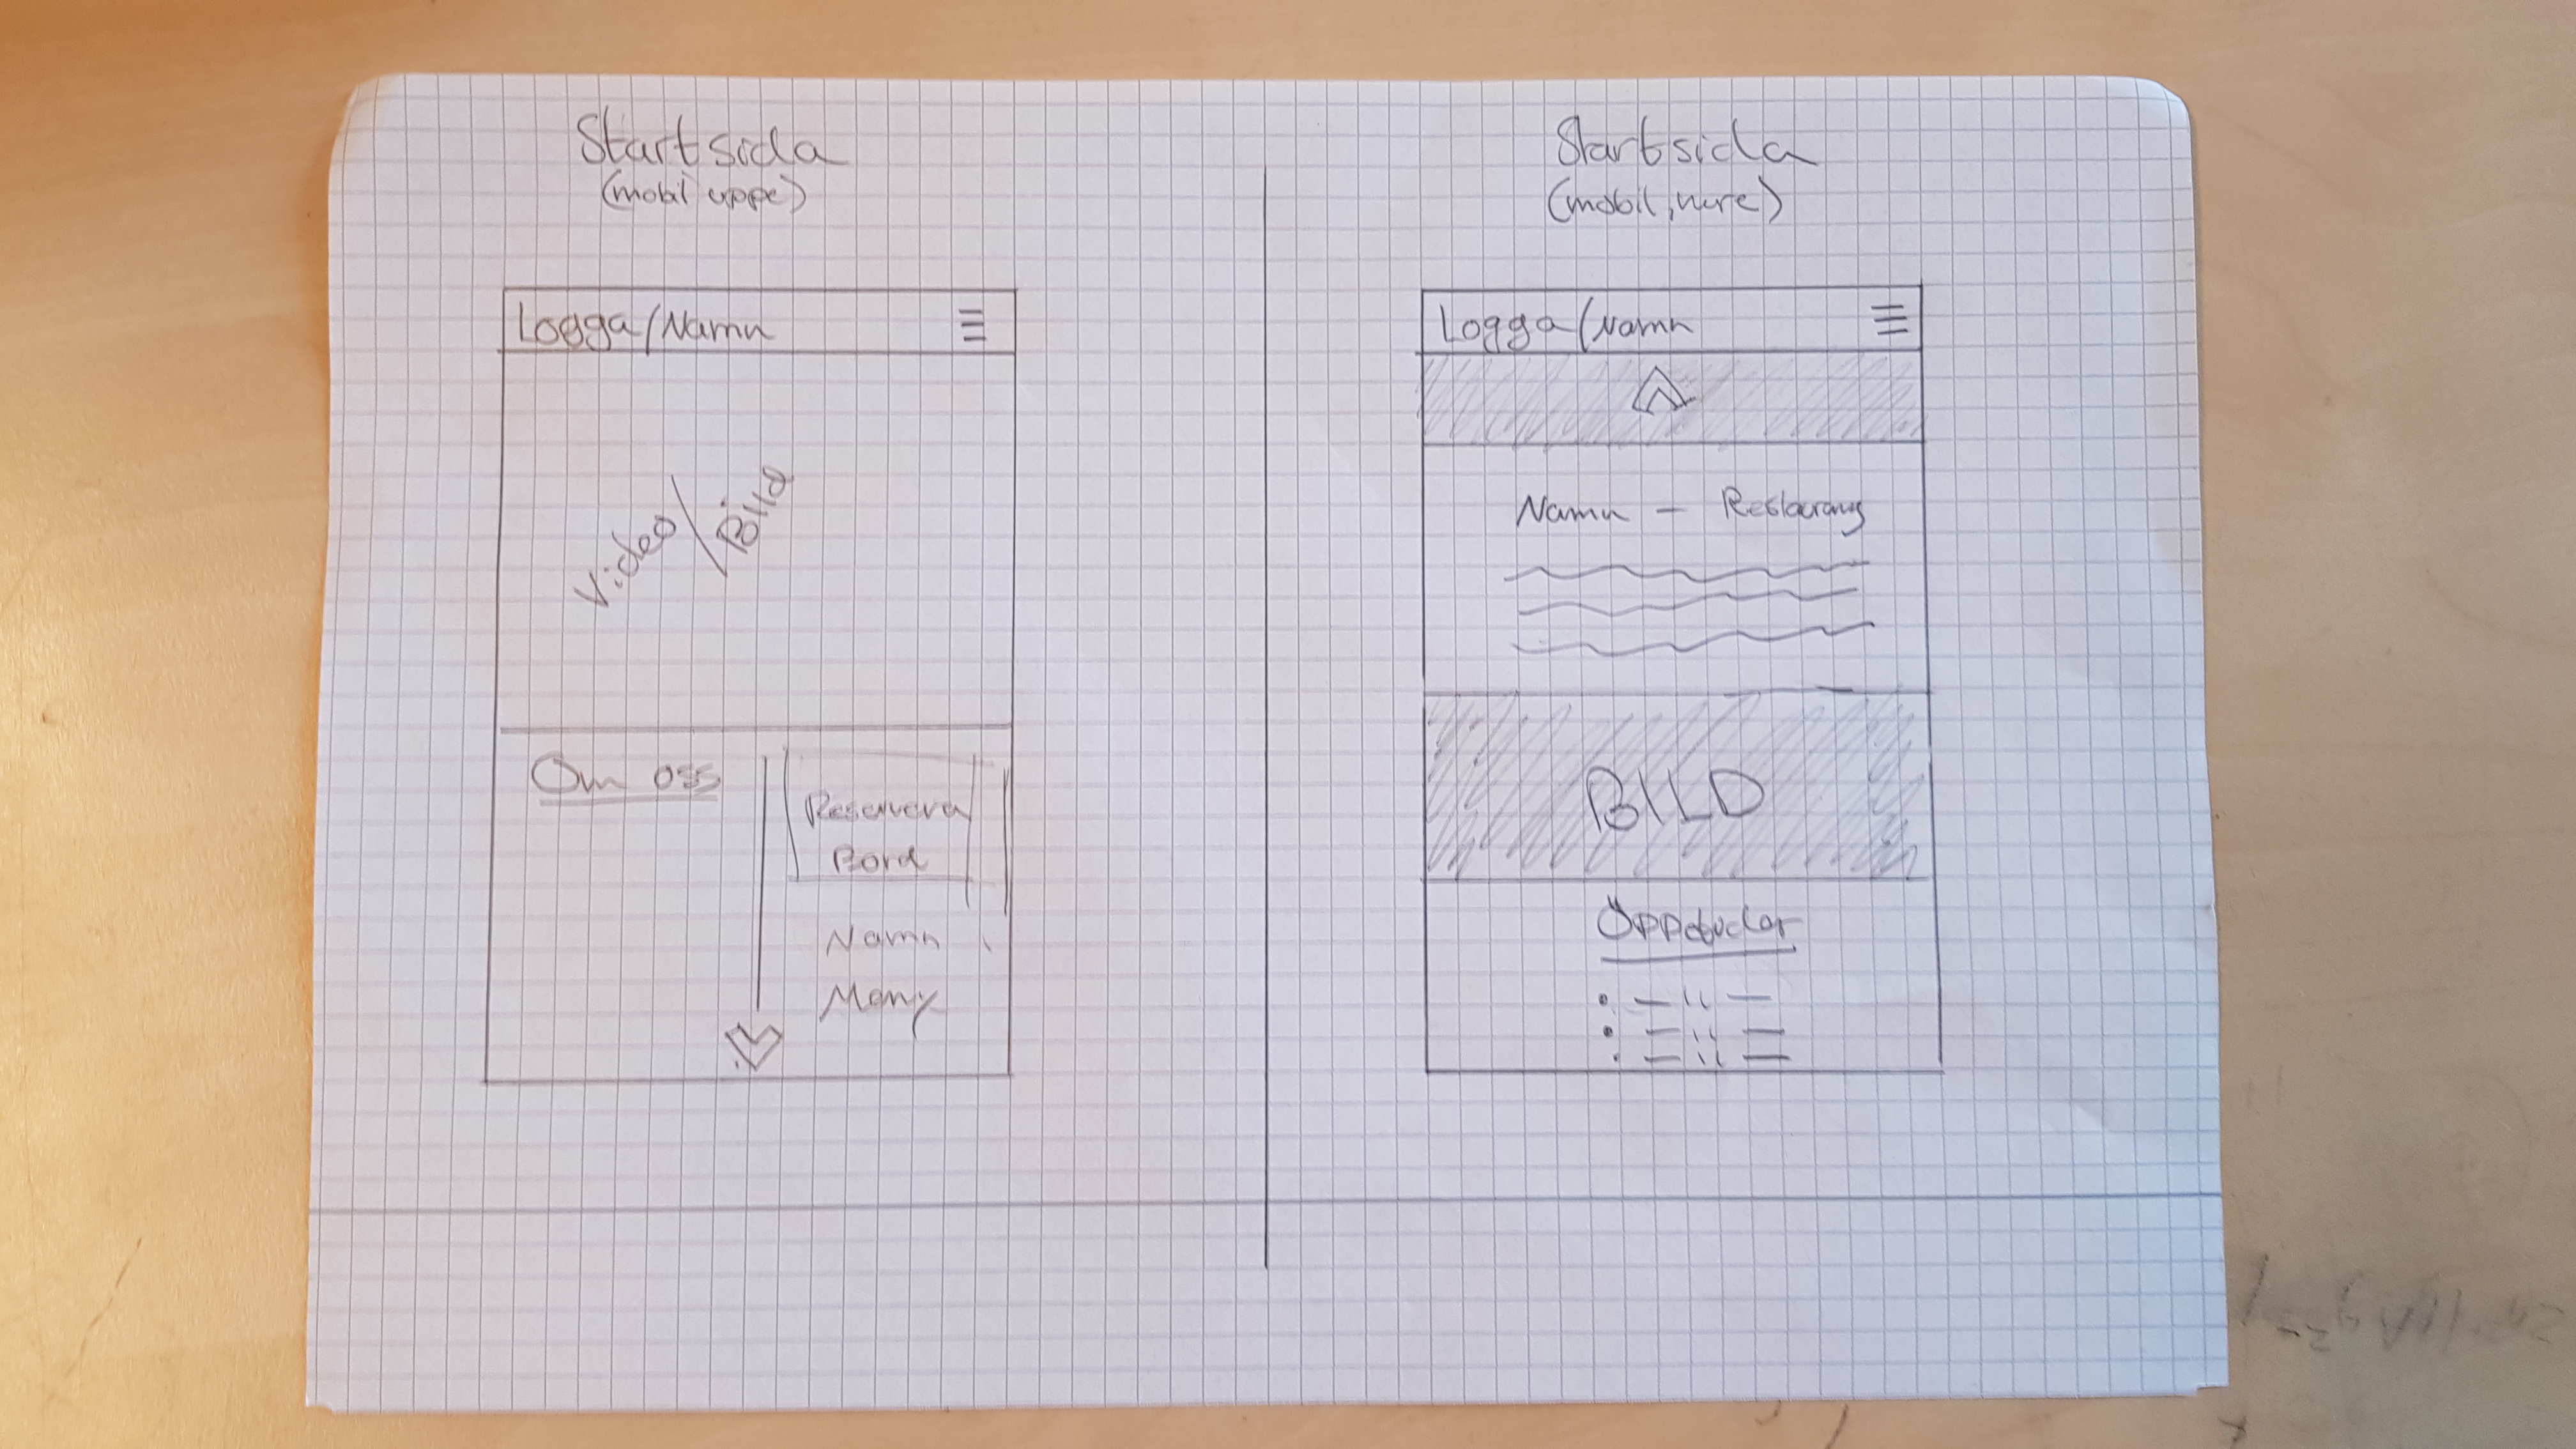 Startsida
(mobil, uppe)
Logga/Namn
Video/Bild
Om oss
Reservera
Bord
Namn
Meny
Startsida
(mobil, nere)
Logga/Namn
Namn - Restaurang
BILD
Öppettider